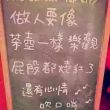 做人要像
茶壺一樣 樂觀
屁股都燒紅了
還有心情
吹口哨